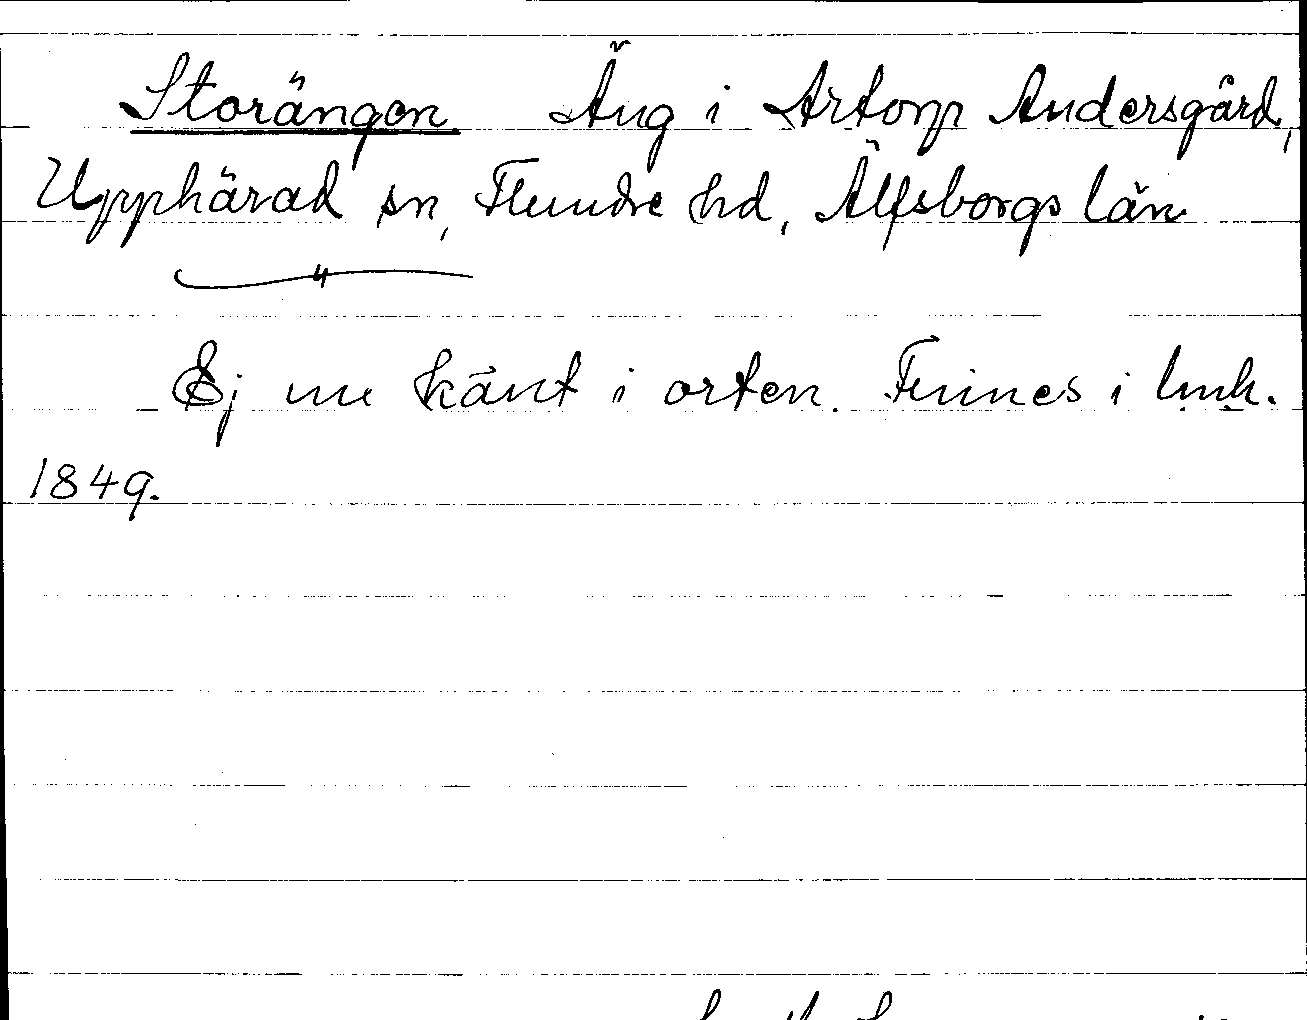 Storängen Äng i Artorp Andersgård,
Upphärad sn, Flundre hd, Älfsborgs län
Ej nu känt i orten. Finnes i lmh.
1849.